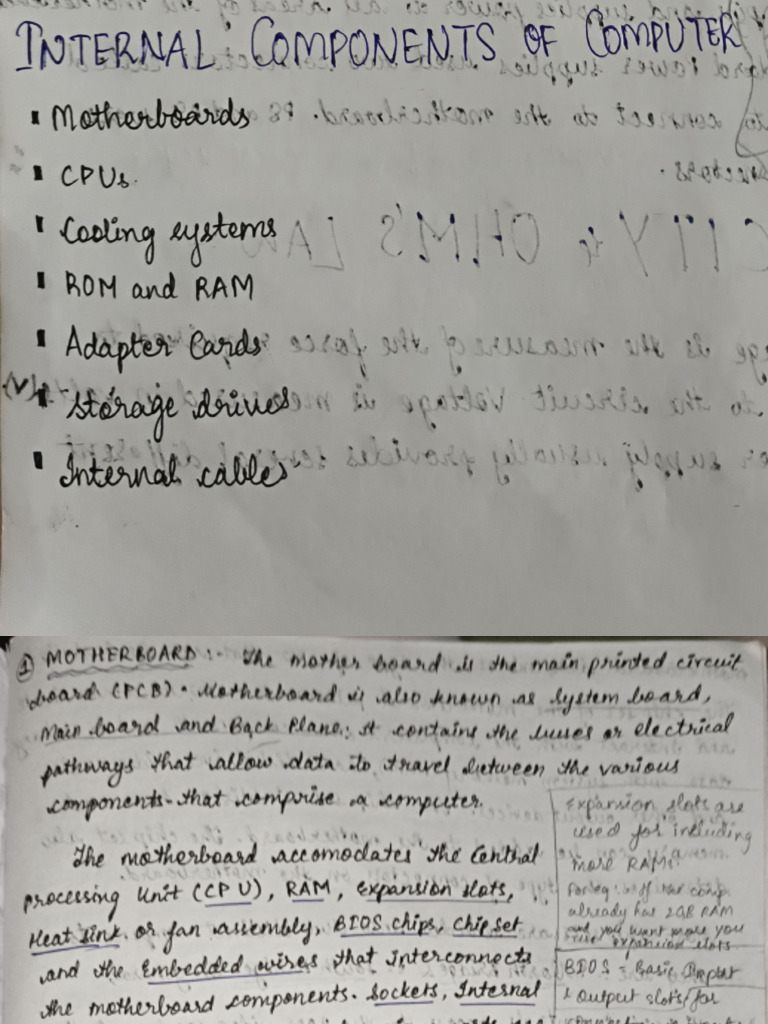 INTERNAL COMPONENTS OF COMPUTER
Motherboards
CPUs
Cooling systems
ROM and RAM
Adapter Cards
Storage drives
Internal cables
1 MOTHERBOARD :- The mother board is the main printed circuit
board (PCB). Motherboard is also known as System board,
Main board and Back Plane. It contains the buses or electrical
pathways that allow data to travel between the various
components that comprise a computer.
The motherboard accomodates the Central
processing Unit (CPU), RAM, expansion slots,
Heat sink or fan assembly, BIOS chips, Chip set
and the Embedded wires that interconnects
the motherboard components. Sockets, Internal
Expansion slots are
used for including
more RAMs.
For eg. if our comp
already has 2GB RAM
and you want more you
use expansion slots
BIOS = Basic
output slots for